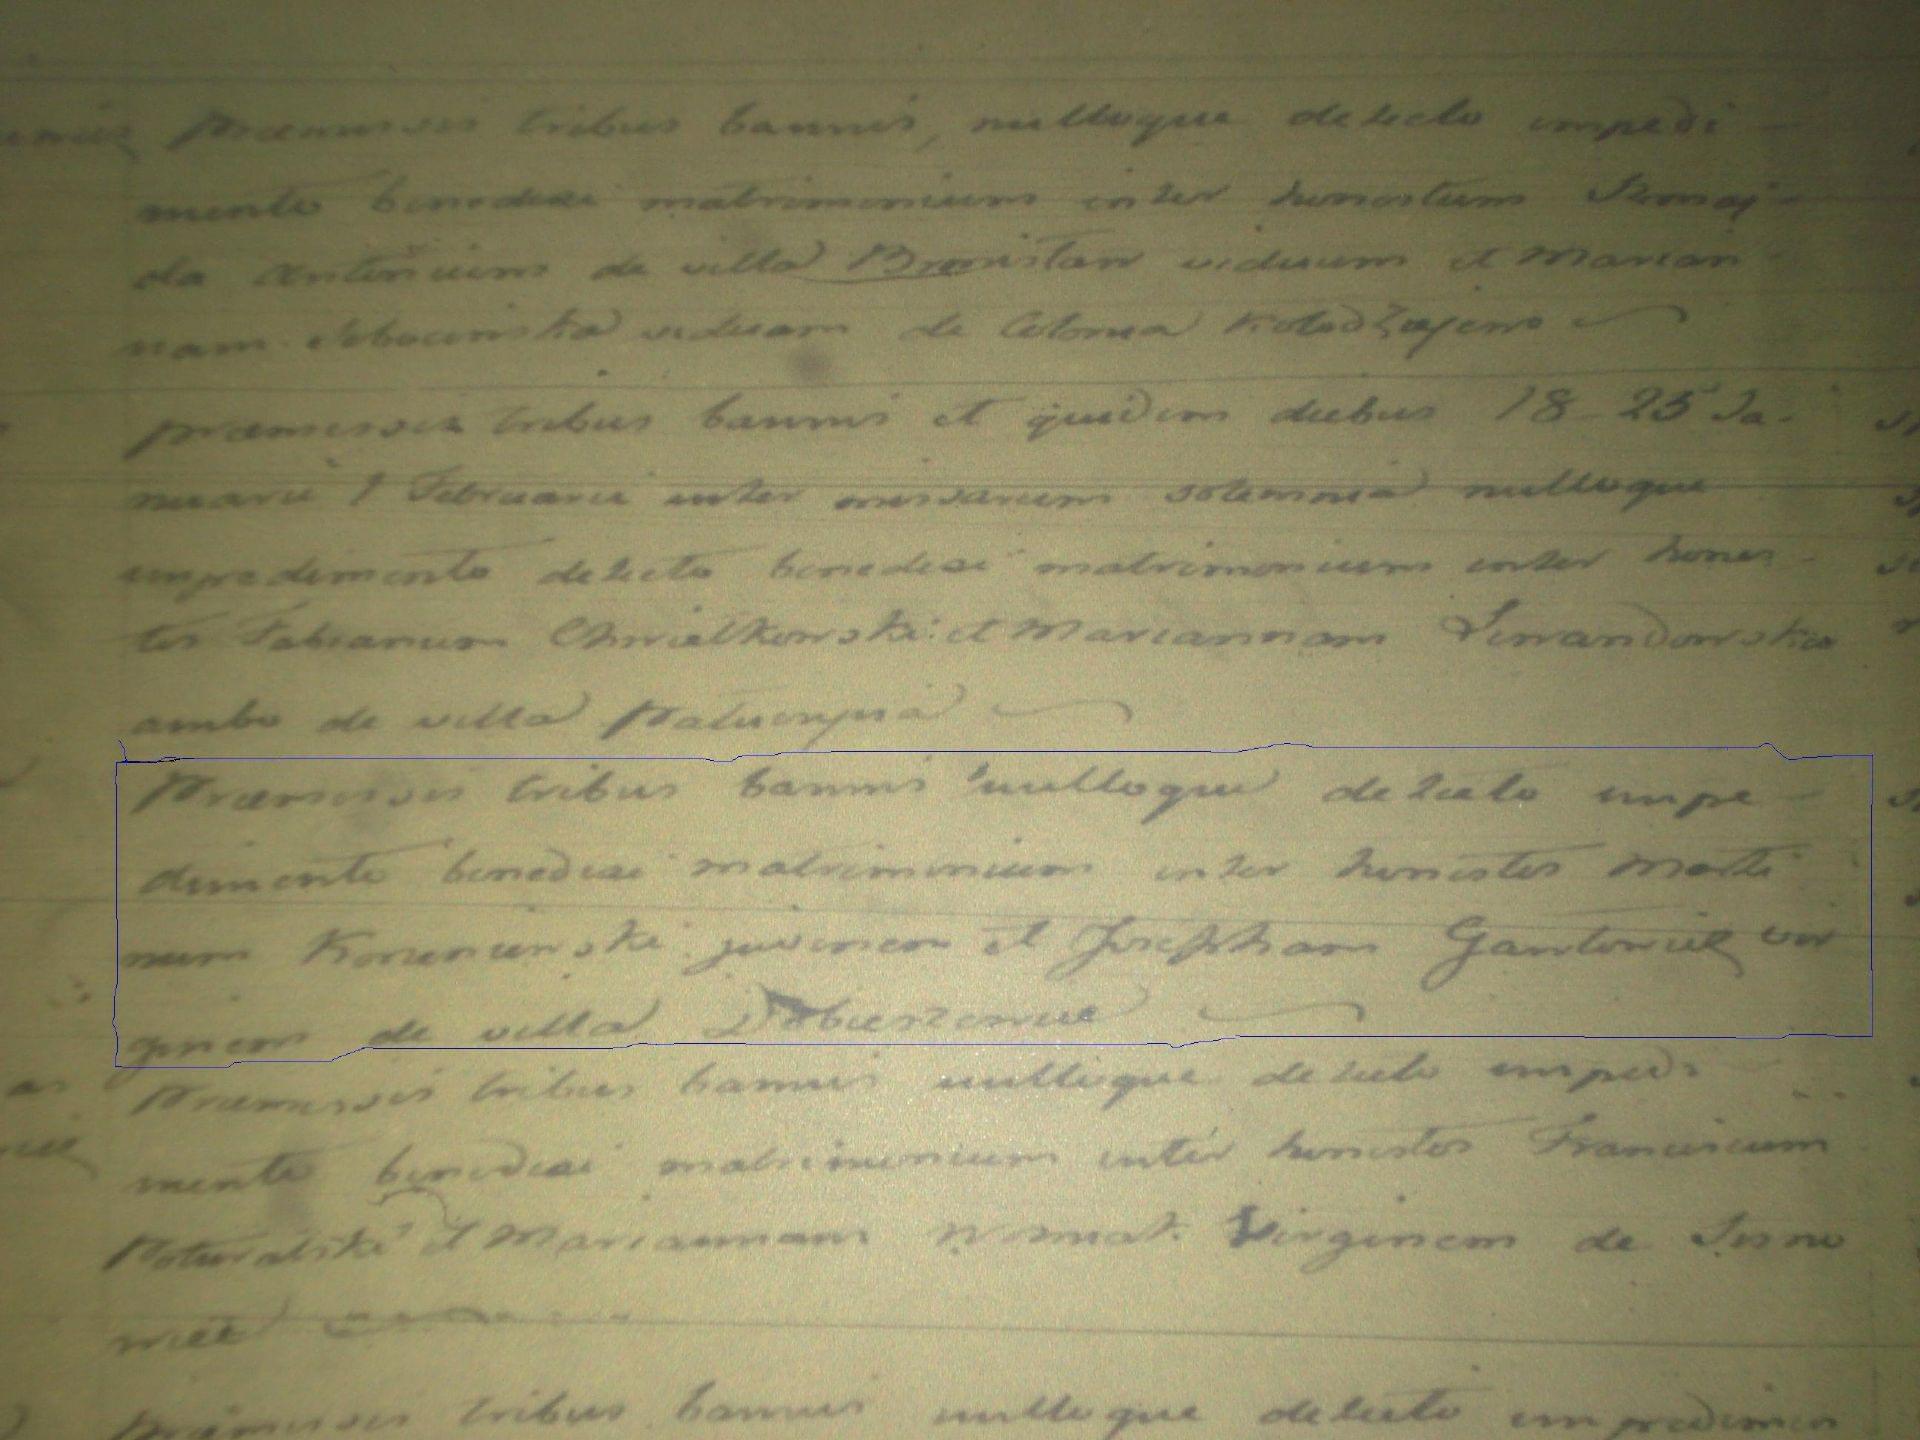 Praemissis tribus bannis, nulloque detecto impedi
mento benedixi matrimonium inter honestum
Antonium de villa viduum et Marian
nam viduam de Colonia
praemissis tribus bannis et quidem diebus 18 25 Ja-
nuarii 1 Februarii inter missarum solemnia nulloque
impedimento detecto benedixi matrimonium inter hones-
tos Fabianum Chmielkowski et Mariannam Lewandowska
ambo de villa
Praemissis tribus bannis nulloque detecto impe
dimento benedixi matrimonium inter honestos Marti
num juvenem et Josepham vir
ginem de villa
Praemissis tribus bannis nulloque detecto impedi
mento benedixi matrimonium inter honestos Franciscum
Poturalski et Mariannam Virginem de
Praemissis tribus bannis nulloque detecto impedimen